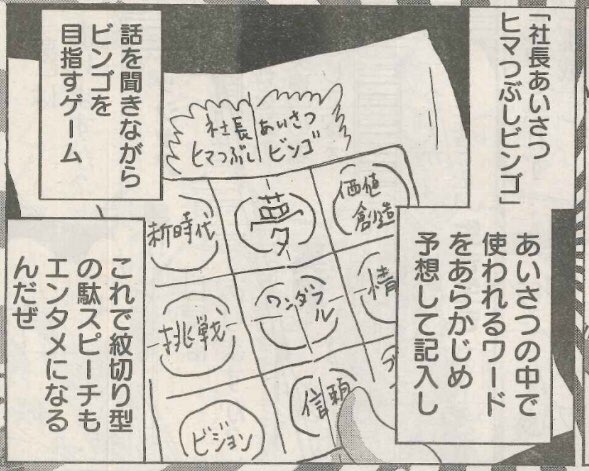 「社長あいさつ
ヒマつぶしビンゴ」
あいさつの中で
使われるワード
をあらかじめ
予想して記入し
話を聞きながら
ビンゴを
目指すゲーム
社長
ヒマつぶし
あいさつ
ビンゴ
新時代
夢
価値
創造
挑戦
ワンダフル
情
ビジョン
信頼
これで紋切り型
の駄スピーチも
エンタメになる
んだぜ